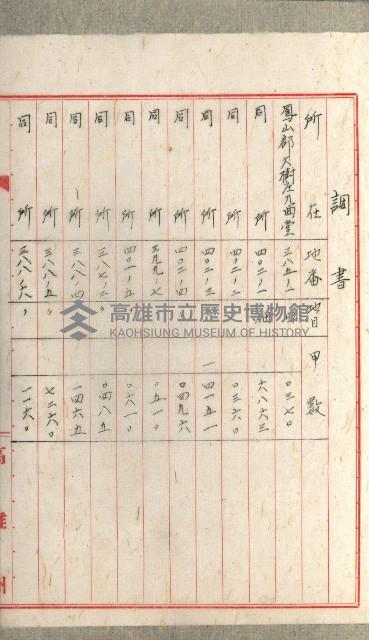 調書
所在 地番 地目 甲数
鳳山郡大樹庄九曲堂 三八五ノ一 〇三七〇
同所 四〇二ノ一 畑 六八六三
同所 四〇二ノ二 〃 〇三六〇
同所 四〇二ノ三 一 四一五一
同所 四〇二ノ四 〇四九六
同所 三九九ノ七 〇五一〇
同所 四〇一ノ五 〇六一〇
同所 三八七ノ二 〃 〇四八五
同所 三八八ノ四 〃 一四六五
同所 三八八ノ五 〃 七二六〇
同所 三八八ノ六 〃 一一六〇
高雄州
高雄市立歷史博物館
KAOHSIUNG MUSEUM OF HISTORY